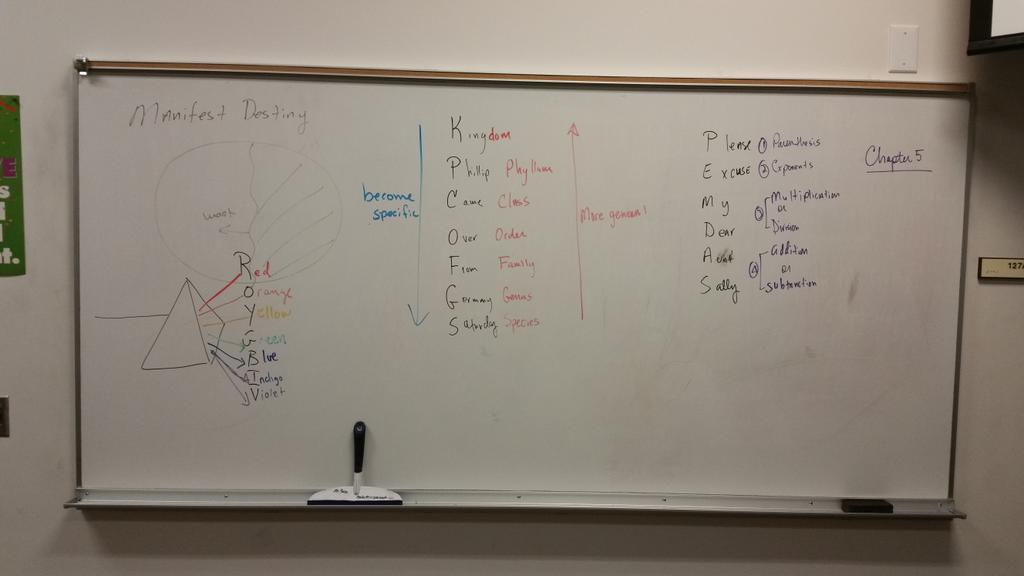 Manifest Destiny
west
Red
Orange
Yellow
Green
Blue
Indigo
Violet
become
specific
Kingdom
Phillip Phyllum
Came Class
Over Order
From Family
Germany Genus
Saturday Species
More general
Please ① Parenthesis
Excuse ② Exponents
My ③ Multiplication
or
Dear Division
Aunt ④ addition
or
Sally subtraction
Chapter 5
127A